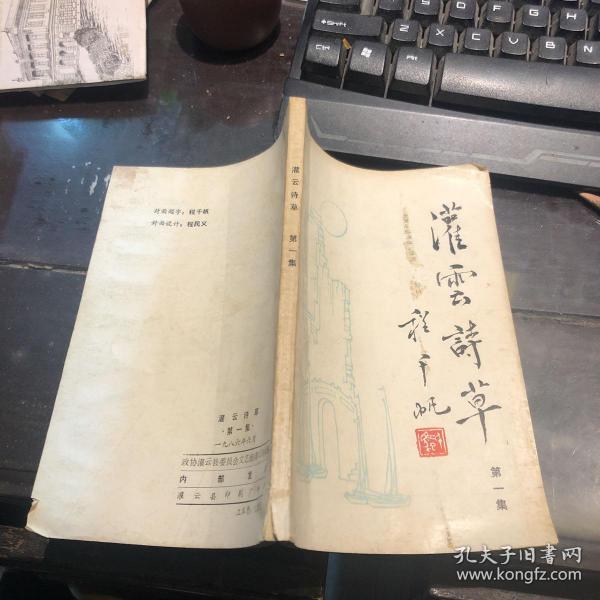 灌雲詩草
程千帆
第一集
灌云诗草 第一集
封面题字：程千帆
封面设计：程民义
灌云诗草
·第一集·
一九八六年六月
政协灌云县委员会文艺
内部
灌云县印刷厂
Shift
Ctrl
Alt
孔夫子旧书网
www.kongfz.com